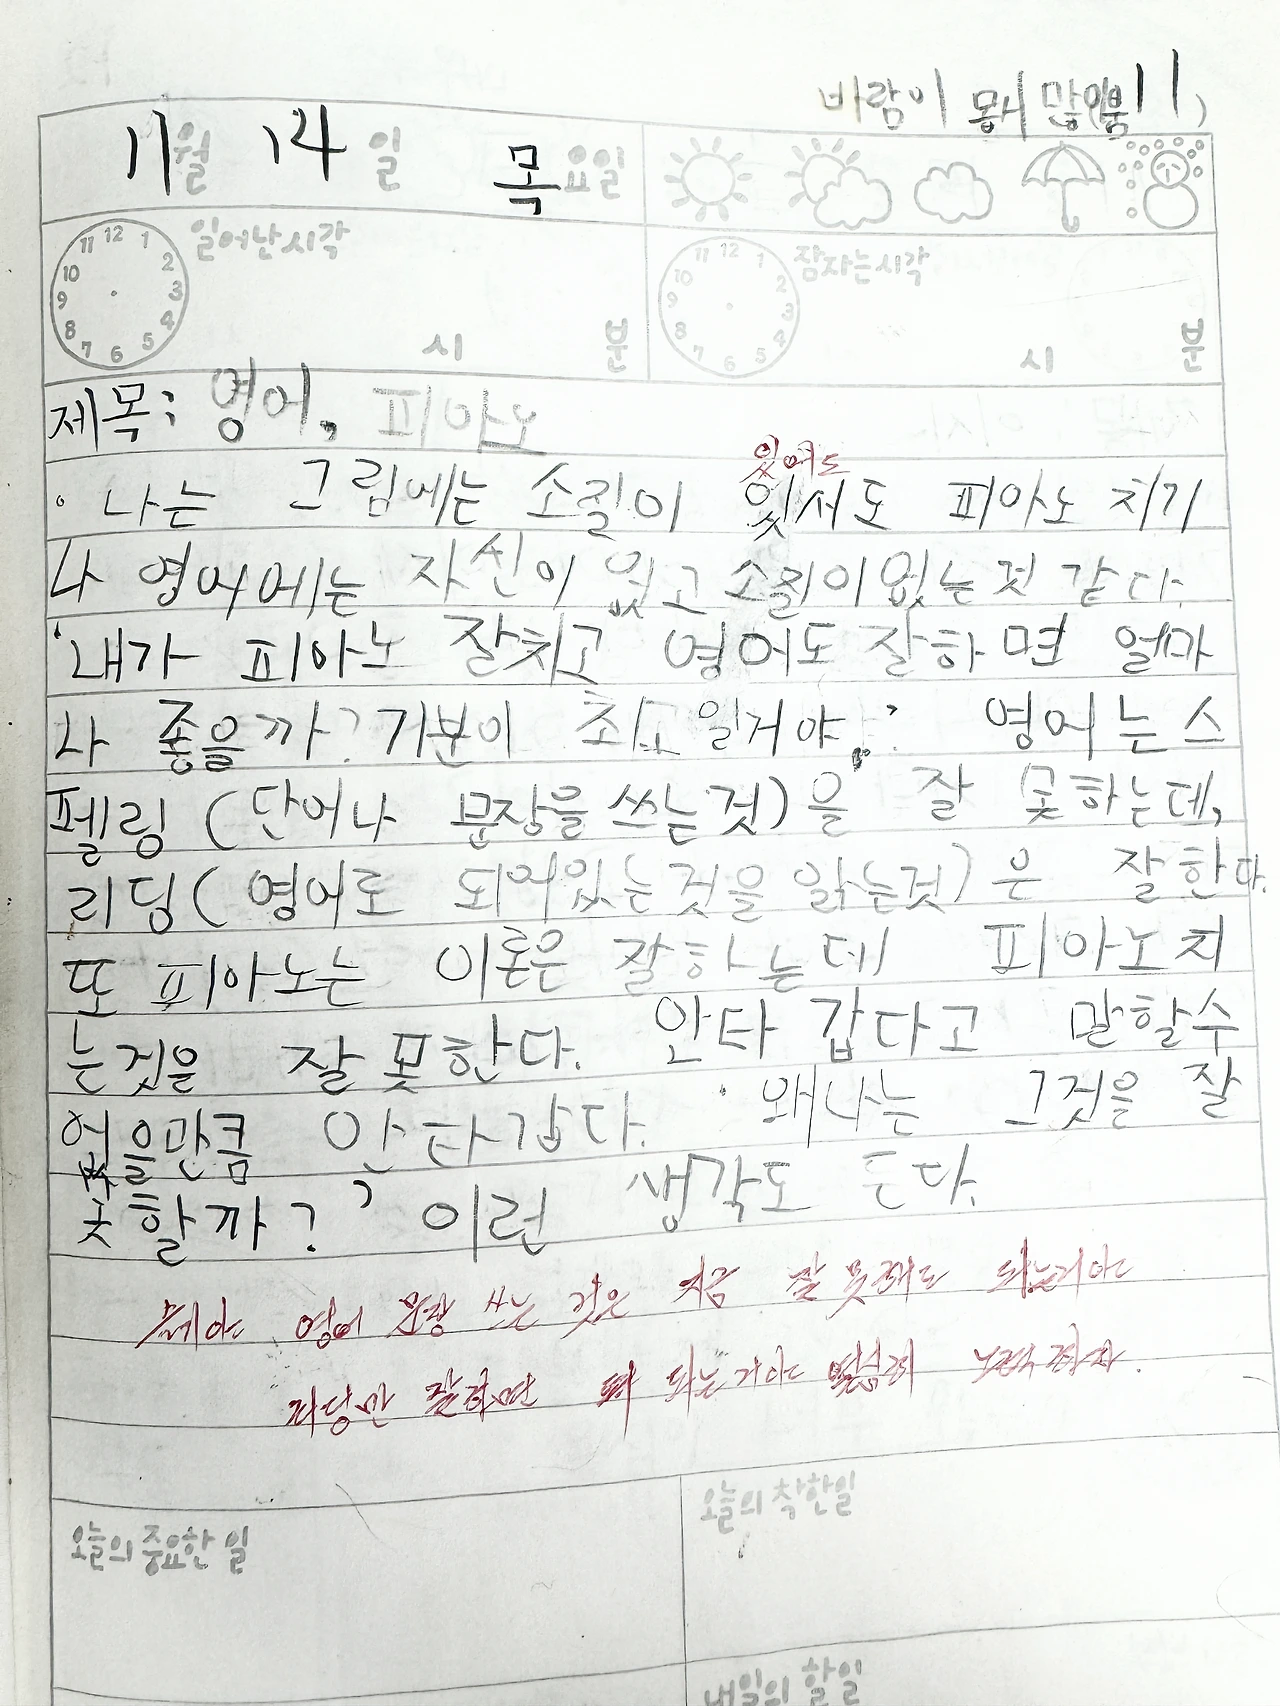 바람이 많이
11월 14일 목요일
11 12 1 2 3 4 5 6 7 8 9 10
일어난시각
시 분
11 12 1 2 3 4 5 6 7 8 9 10
잠자는시각
시 분
제목: 영어, 피아노
있어도
나는 그림에는 소질이 있서도 피아노 치기
나 영어에는 자신이 없고 소질이없는것 같다.
'내가 피아노 잘치고 영어도 잘하면 얼마
나 좋을까? 기분이 최고일거야.' 영어는스
펠링(단어나 문장을쓰는것)을 잘 못하는데,
리딩(영어로 되어있는것을 읽는것)은 잘한다.
또 피아노는 이론은 잘하는데 피아노치
는것을 잘못한다. 안타 갑다고 말할수
없을만큼 안타갑다. '왜나는 그것을 잘
못할까?' 이런 생각도 든다.
영어 문장 쓰는 것은 지금 잘 못해도 되는거야
잘하면 되는거야 열심히 노력하자.
오늘의 중요한 일
오늘의 착한일
내일의 할일